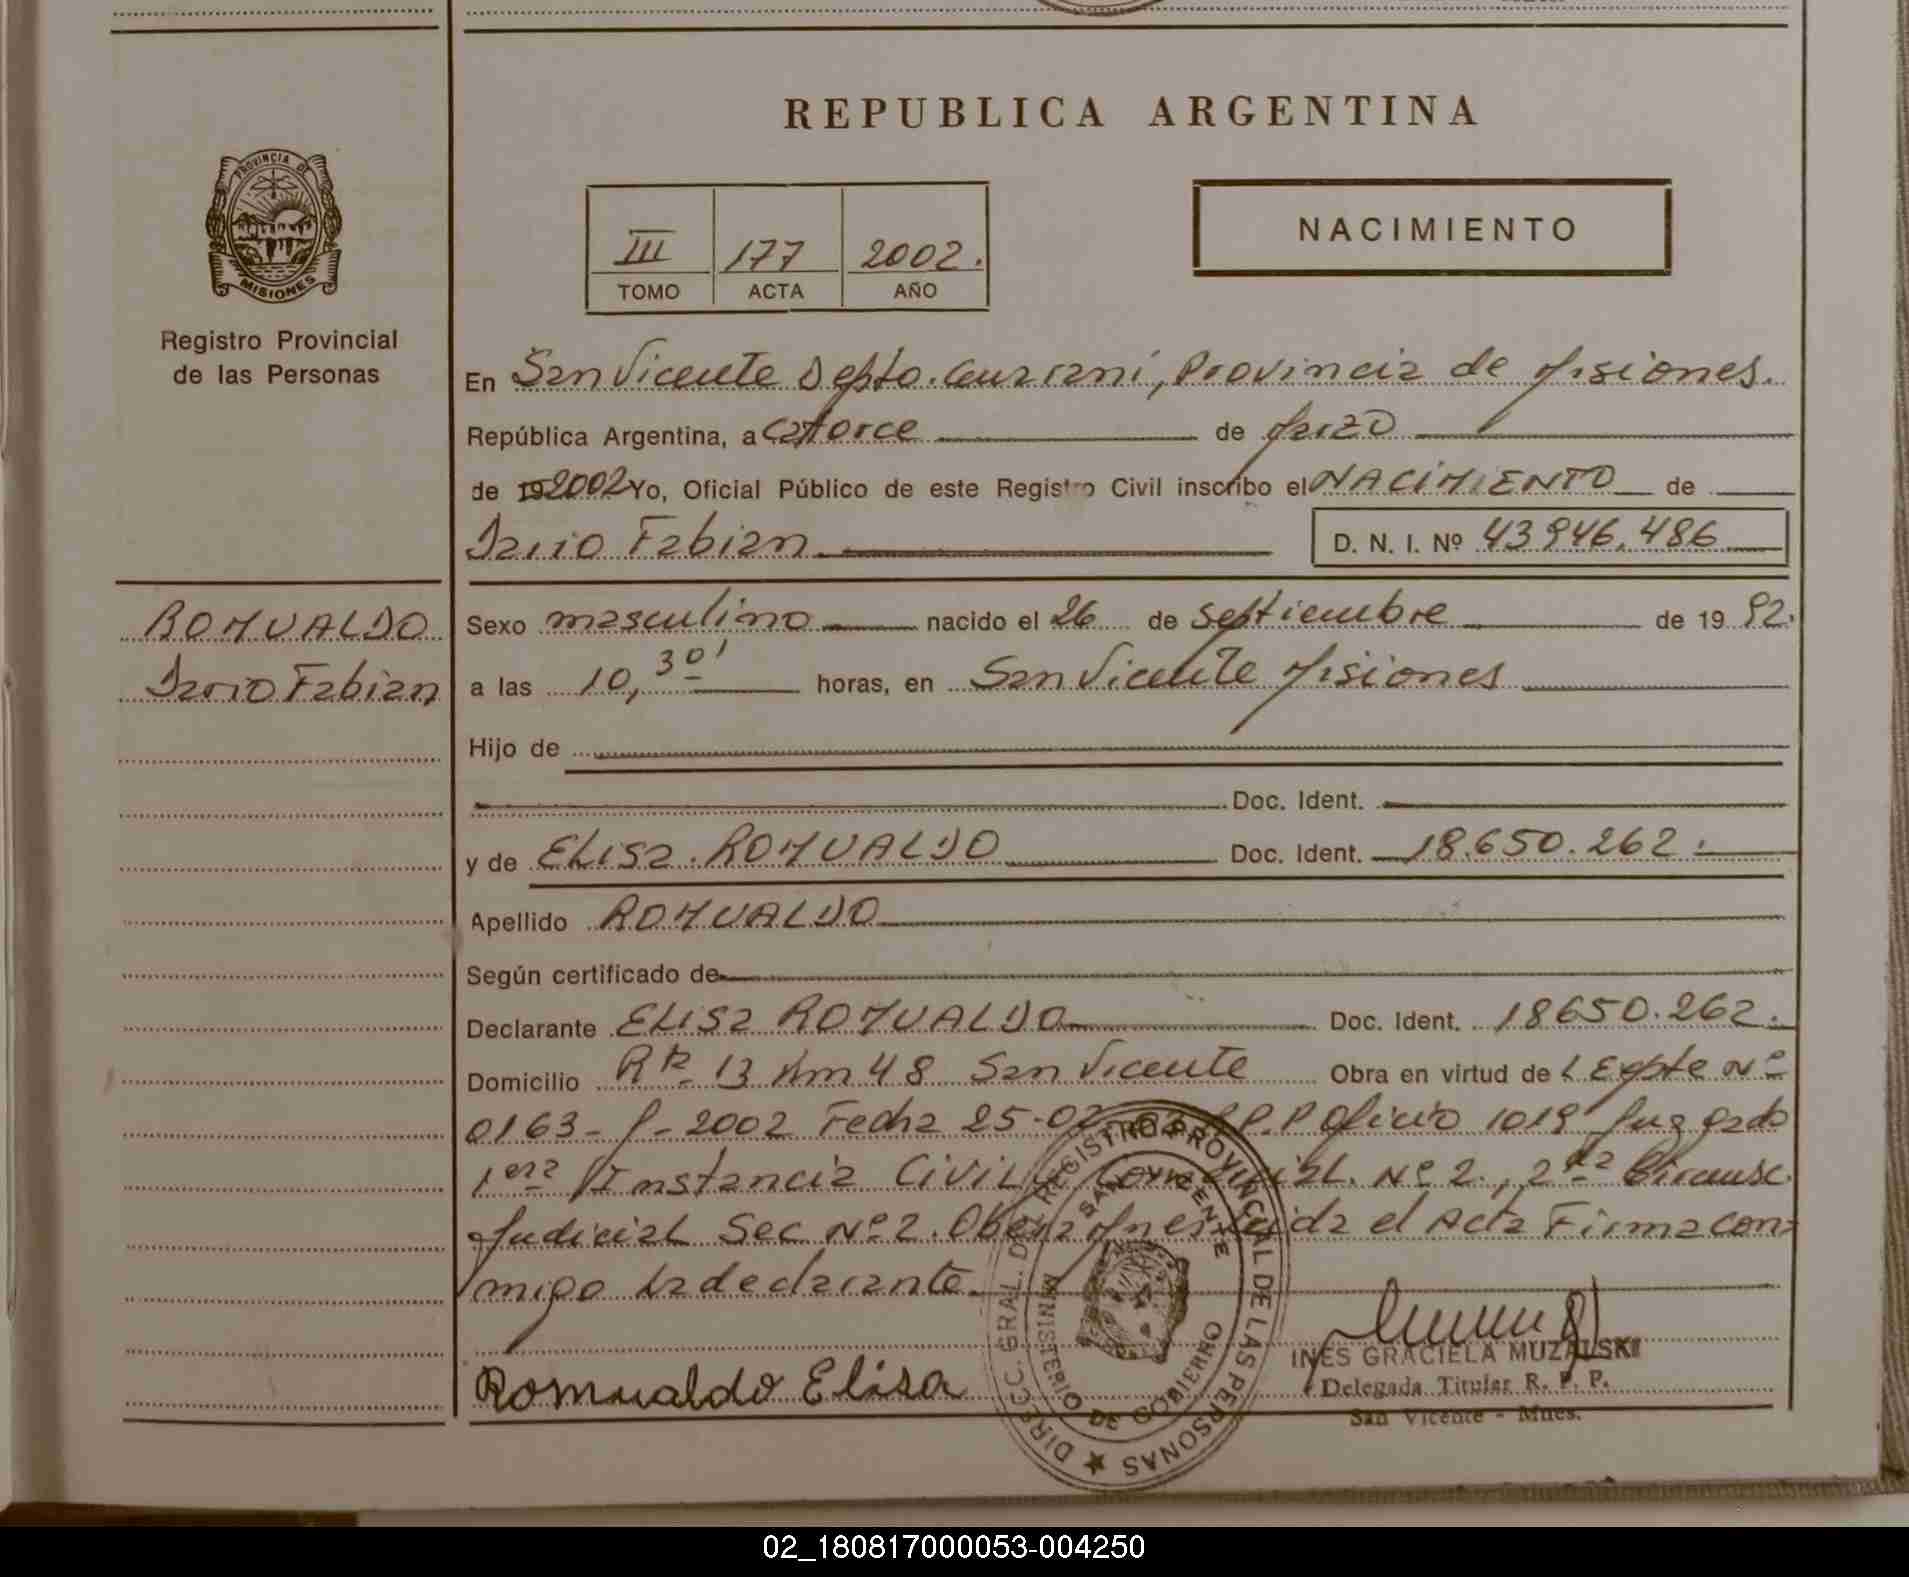 REPUBLICA ARGENTINA
PROVINCIA DE
MISIONES
Registro Provincial
de las Personas
III 177 2002.
TOMO ACTA AÑO
NACIMIENTO
En San Vicente Depto. Guarani, Provincia de Misiones.
República Argentina, a catorce de Marzo
de 19 2002 Yo, Oficial Público de este Registro Civil inscribo el NACIMIENTO de
Dario Fabian D. N. I. Nº 43946.486
ROMUALDO
Dario Fabian
Sexo masculino nacido el 26 de Septiembre de 19 92.
a las 10,30' horas, en San Vicente Misiones
Hijo de
Doc. Ident.
y de ELisa ROMUALDO Doc. Ident. 18.650.262.
Apellido ROMUALDO
Según certificado de
Declarante ELisa ROMUALDO Doc. Ident. 18650.262.
Domicilio Km 48 San Vicente Obra en virtud de Expte Nº
0163- 2002 Fecha 25-02- R.P.P Oficio 1019 Juzgado
1era Instancia CiviL y Comercial. Nº 2., 2da Circunsc.
Judicial Sec Nº 2. Obera Mnes Leida el Acta Firma con-
migo La declarante.
Romualdo Elisa
DIRECC. GRAL. DEL REGISTRO PROVINCIAL DE LAS PERSONAS
SAN VICENTE
MINISTERIO DE GOBIERNO
INES GRACIELA MUZALSKI
Delegada Titular R. P. P.
San Vicente - Mnes.
02_180817000053-004250